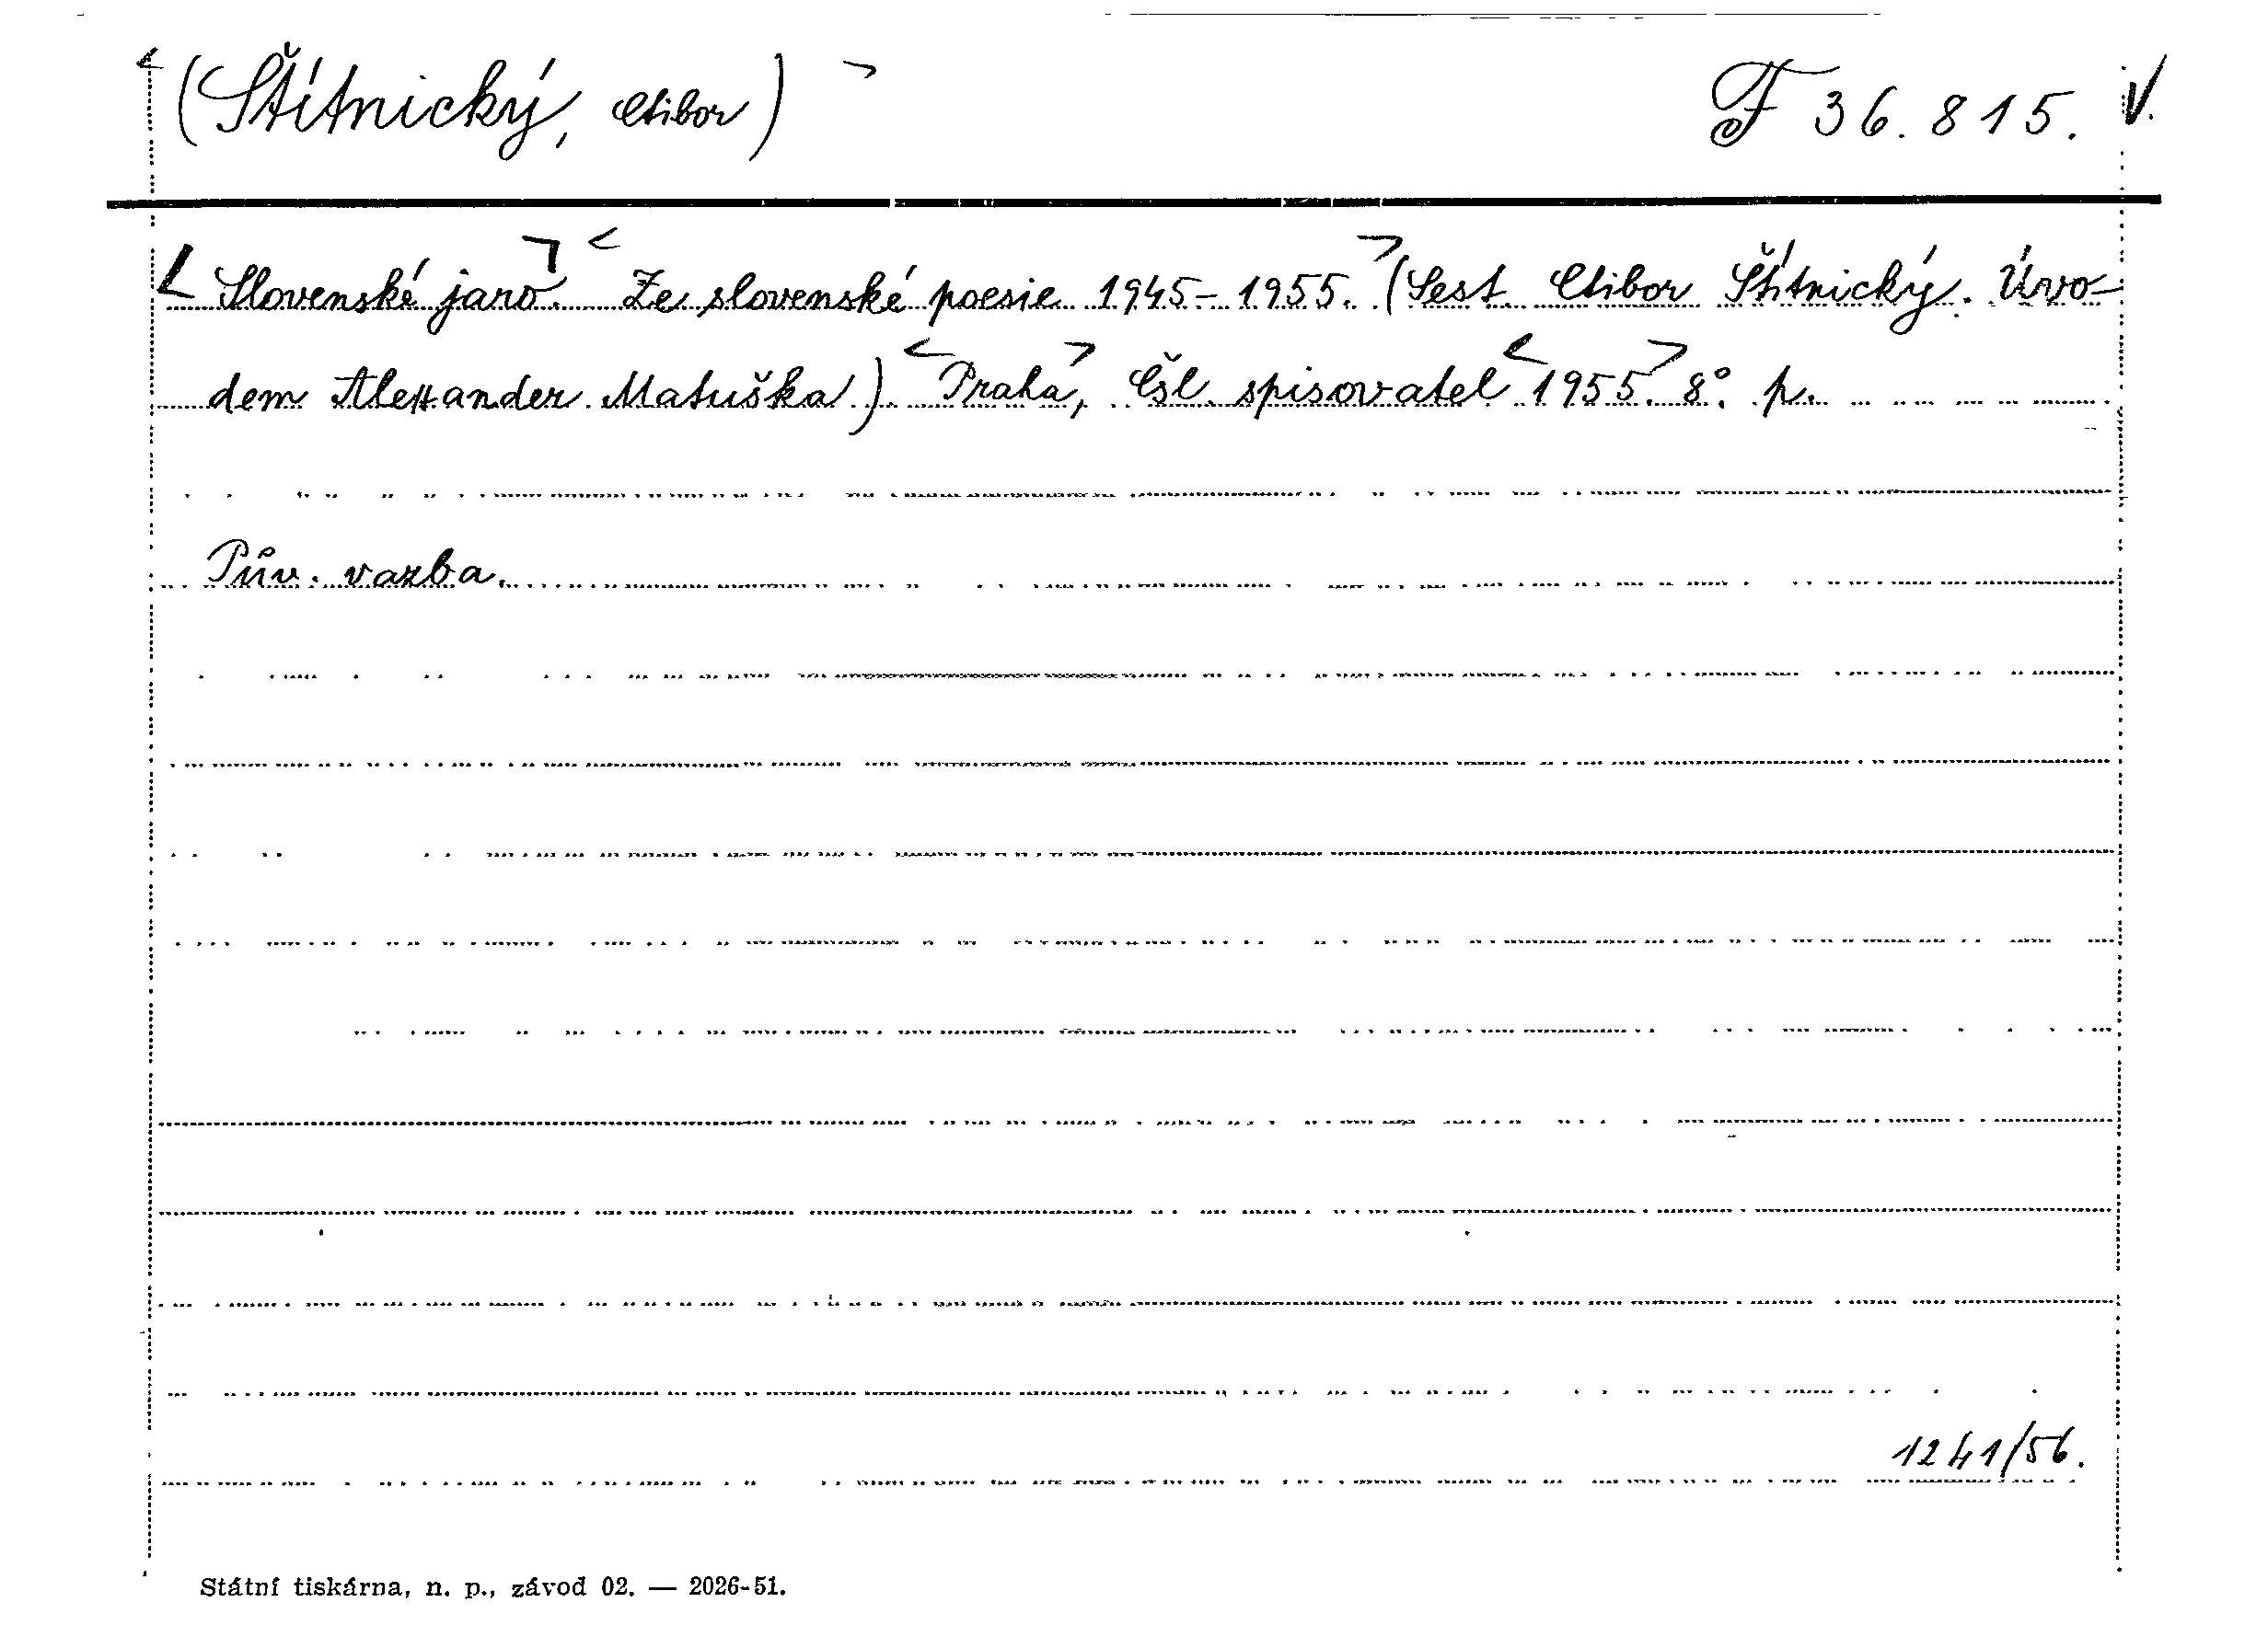 (Štítnický, Ctibor) F 36.815. V.
Slovenské jaro. Ze slovenské poesie 1945-1955. (Sest. Ctibor Štítnický. Úvo-
dem Alexander Matuška). Praha, Čsl. spisovatel 1955. 8°. p.
Pův. vazba.
1241/56.
Státní tiskárna, n. p., závod 02. — 2026-51.